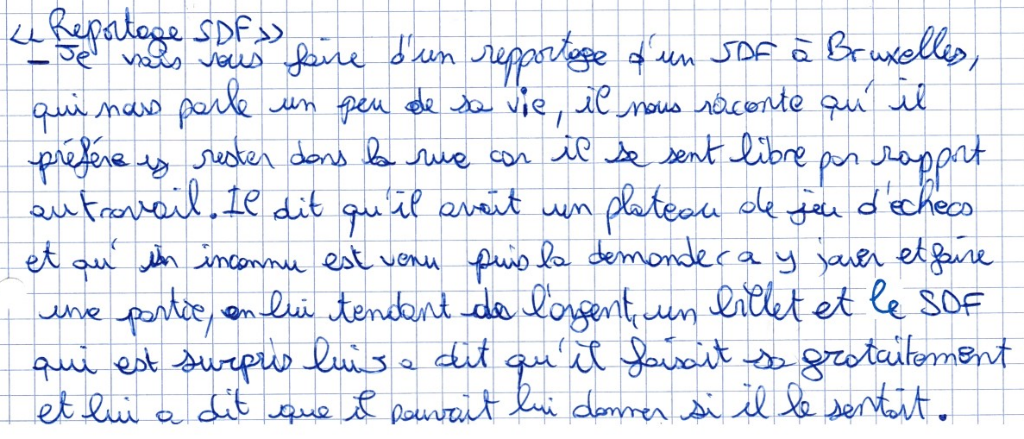 « Reportage SDF »
- Je vais vous faire d'un repportage d'un SDF à Bruxelles,
qui nous parle un peu de sa vie, il nous raconte qu'il
préfére y rester dans la rue car il se sent libre par rapport
au travail. Il dit qu'il avait un plateau de jeu d'échecs
et qu'un inconnu est venu puis la demander a y jouer et faire
une partie, en lui tendant de l'argent, un billet et le SDF
qui est surpris luis a dit qu'il faisait sa gratuitement
et lui a dit que il pouvait lui donner si il le sentait.